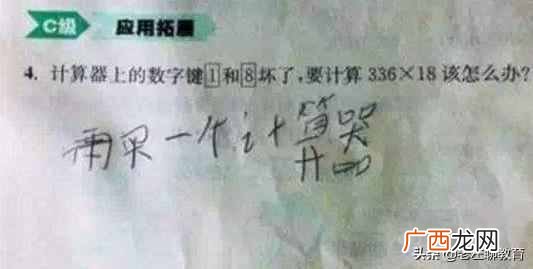 C级 应用拓展
4. 计算器上的数字键1和8坏了,要计算336×18该怎么办?
再买一个计算器
广西龙网
头条 @老王聊教育